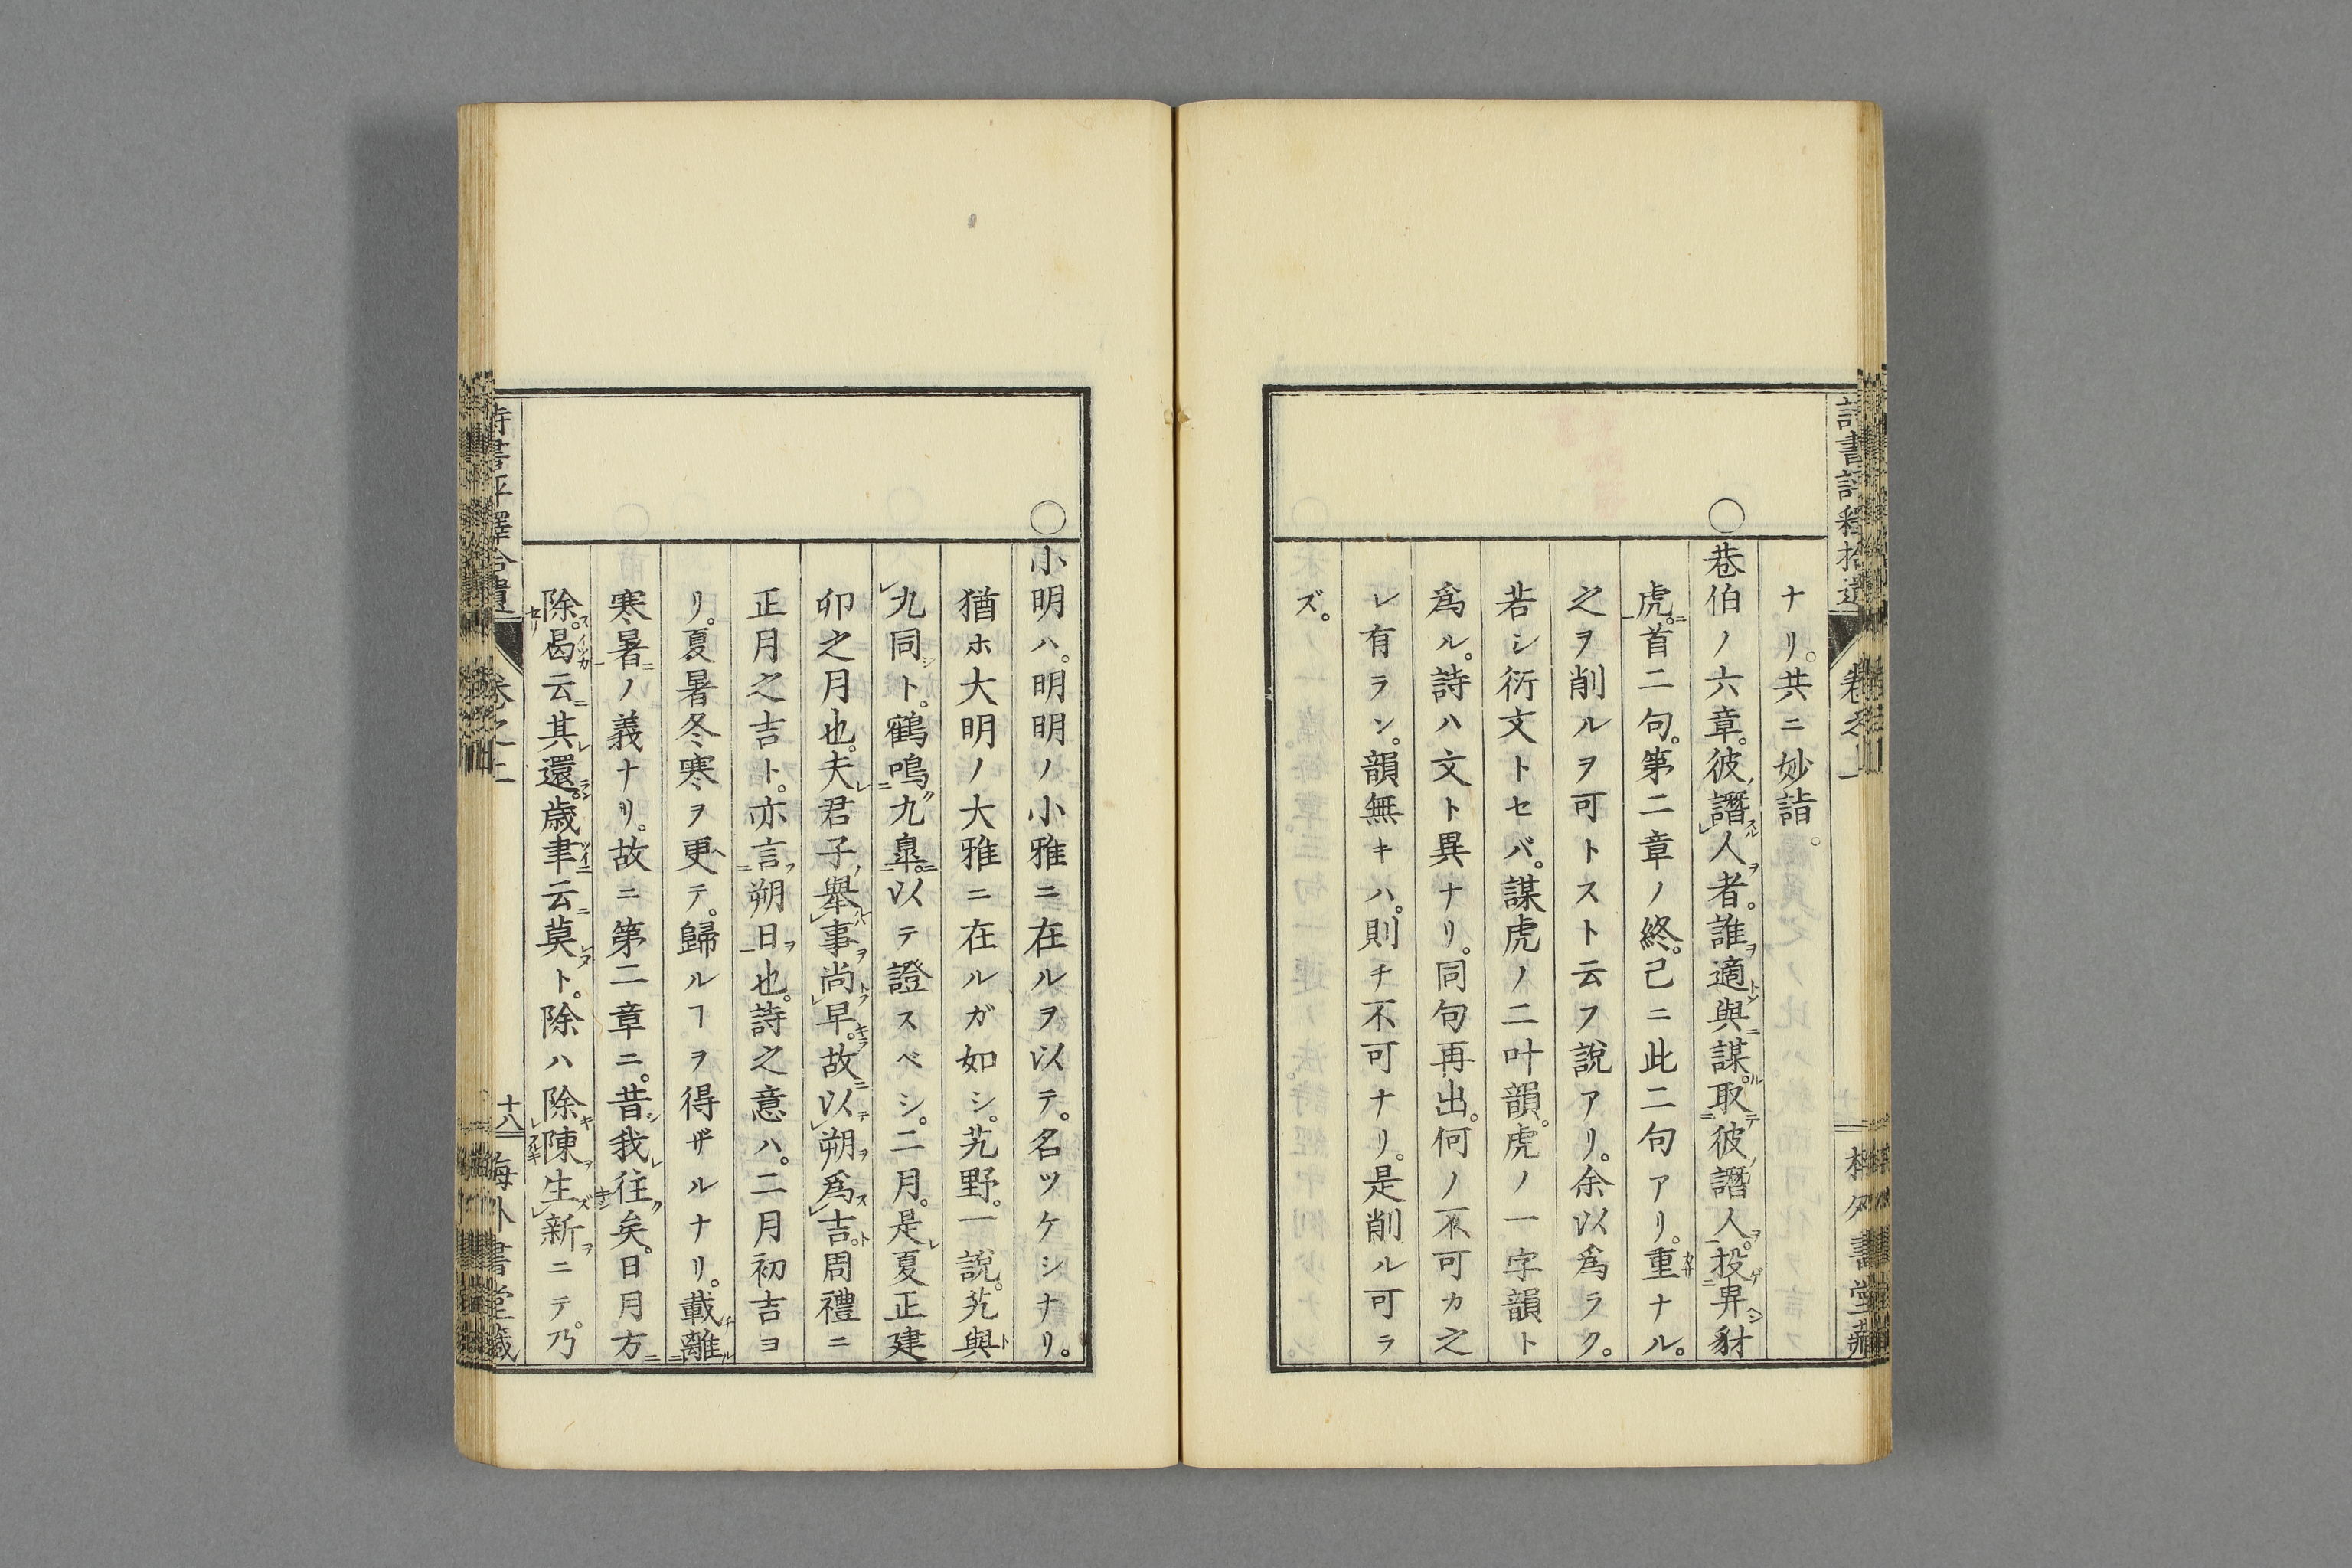 ナリ。共ニ妙詣。
○巷伯ノ六章。彼譖人者。誰適與謀。取彼譖人。投畀豺
虎。首二句。第二章ノ終。己ニ此二句アリ。重ナル。
之ヲ削ルヲ可トスト云フ說アリ。余以爲ラク。
若シ衍文トセバ。謀虎ノ二叶韻。虎ノ一字韻ト
爲ル。詩ハ文ト異ナリ。同句再出。何ノ不可カ之
レ有ラン。韻無キハ。則チ不可ナリ。是削ル可ラ
ズ。
○小明ハ。明明ノ小雅ニ在ルヲ以テ。名ツケシナリ。
猶ホ大明ノ大雅ニ在ルガ如シ。艽野。一說。艽與
九同ト。鶴鳴九皐。以テ證スベシ。二月。是夏正建
卯之月也。夫君子舉事尚早。故以朔爲吉。周禮ニ
正月之吉ト。亦言朔日也。詩之意ハ。二月初吉ヨ
リ。夏暑冬寒ヲ更テ。歸ルヿヲ得ザルナリ。載離
寒暑ノ義ナリ。故ニ第二章ニ。昔我往矣。日月方
除。曷云其還。歲聿云莫ト。除ハ除陳生新ニテ。乃
十八